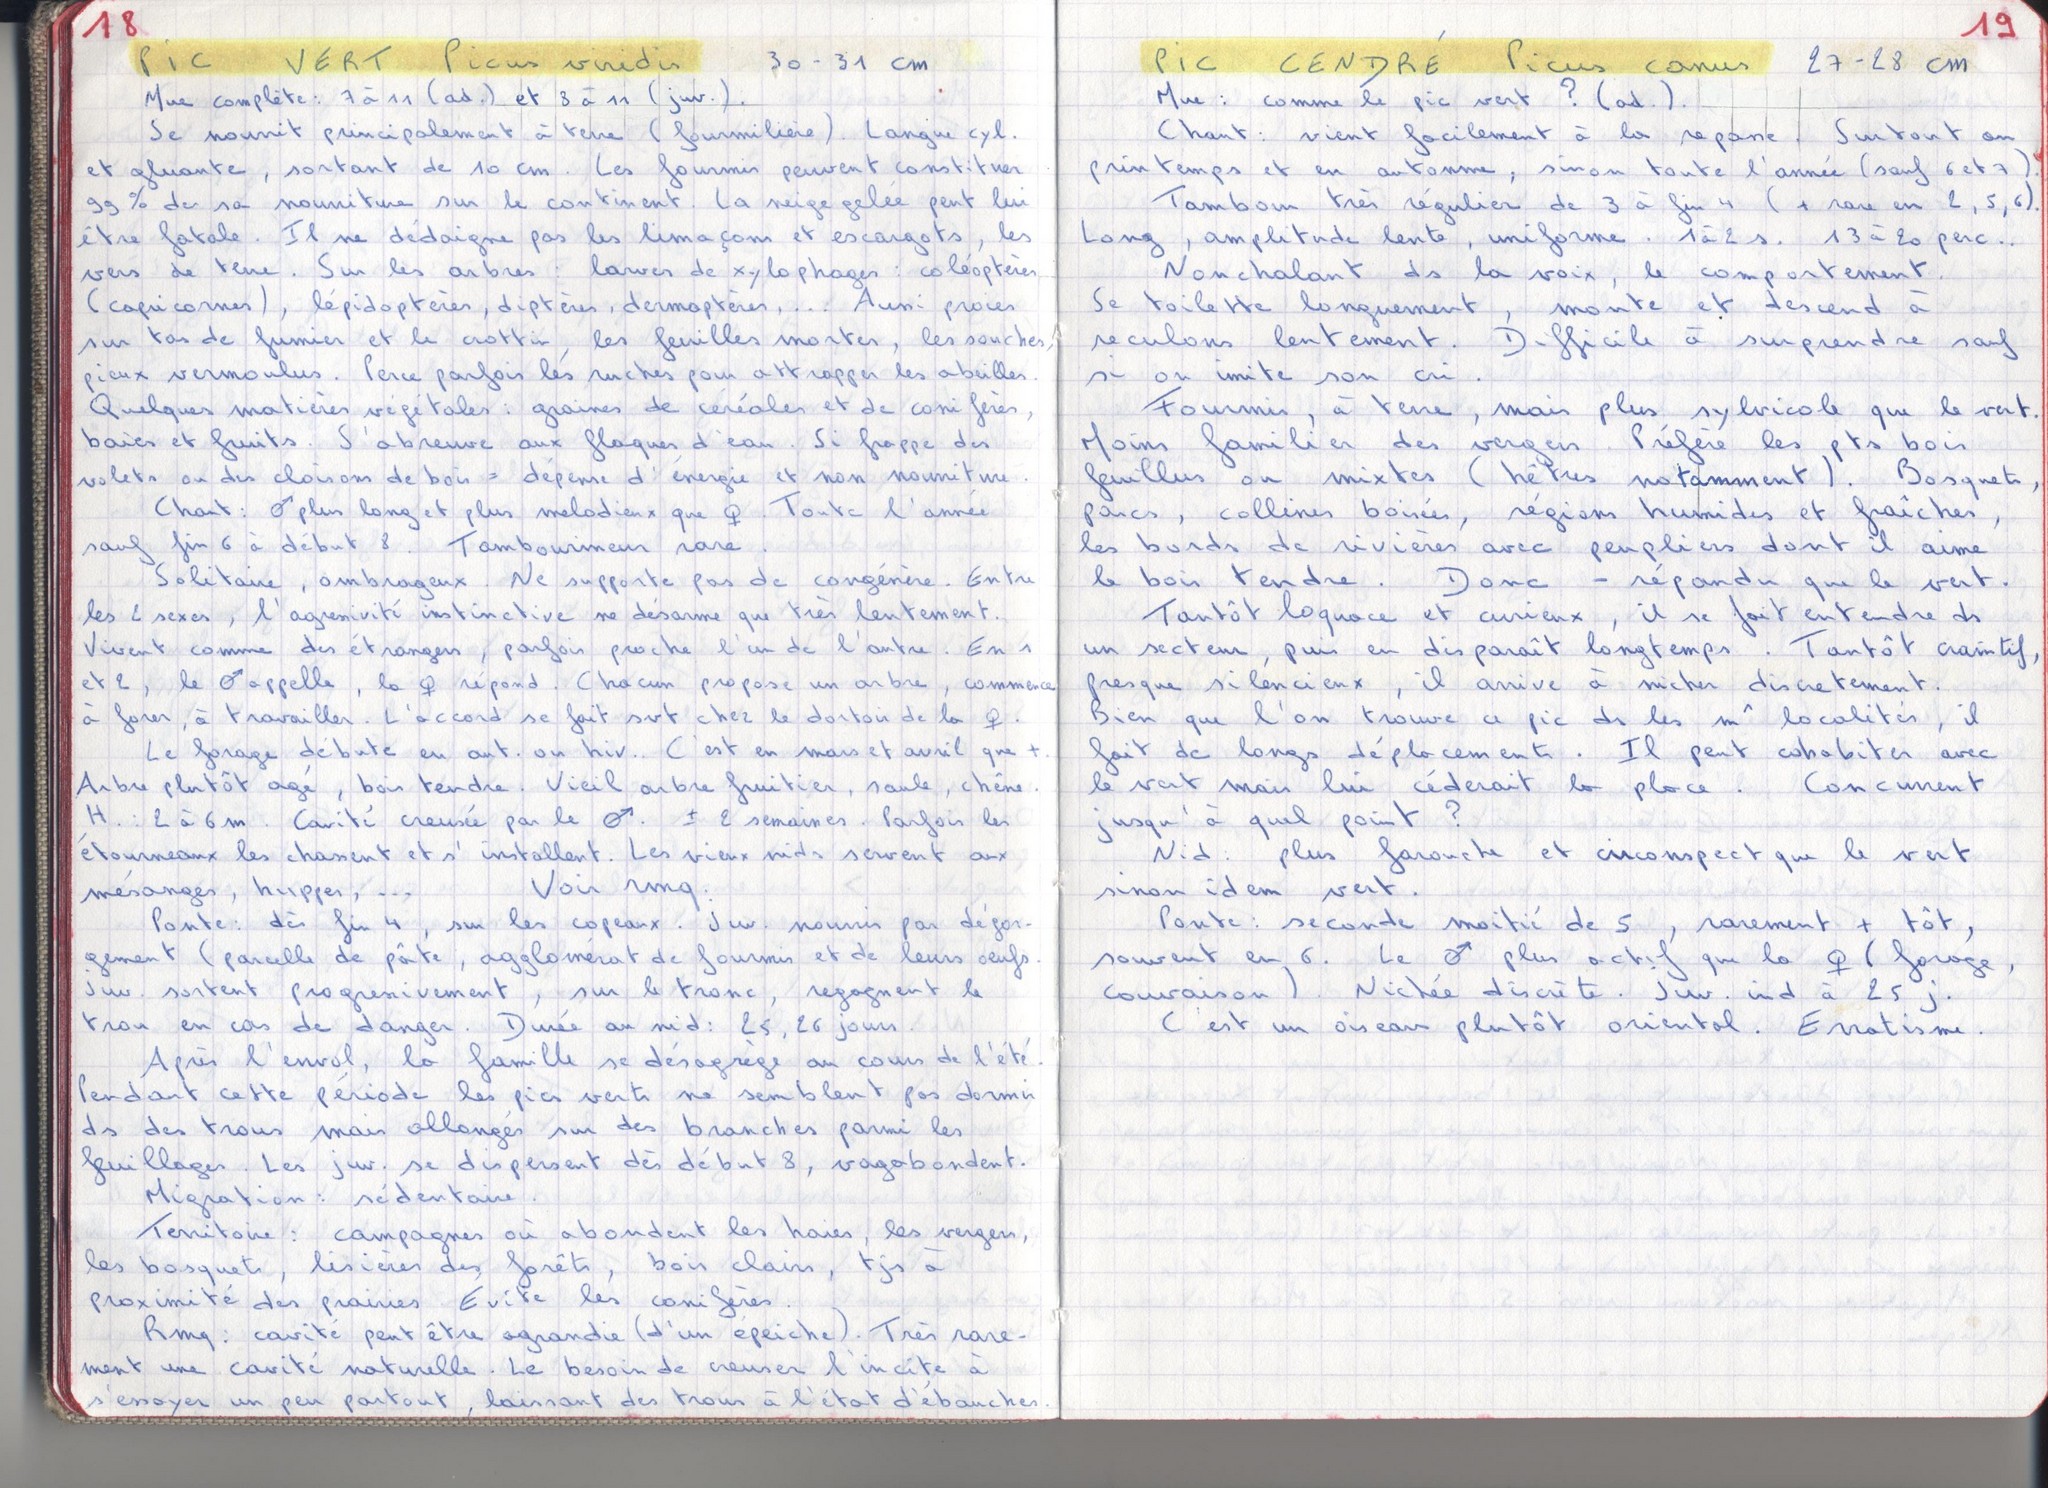 18
PIC VERT Picus viridis 30-31 cm
Mue complète: 7 à 11 (ad.) et 8 à 11 (juv.).
Se nourrit principalement à terre (fourmilière). Langue cyl.
et gluante, sortant de 10 cm. Les fourmis peuvent constituer
99% de sa nourriture sur le continent. La neige gelée peut lui
être fatale. Il ne dédaigne pas les limaçons et escargots, les
vers de terre. Sur les arbres: larves de xylophages: coléoptères
(capricornes), lépidoptères, diptères, dermaptères,... Aussi proies
sur tas de fumier et le crottin, les feuilles mortes, les souches,
pieux vermoulus. Perce parfois les ruches pour attrapper les abeilles.
Quelques matières végétales: graines de céréales et de conifères,
baies et fruits. S'abreuve aux flaques d'eau. Si frappe des
volets ou des cloisons de bois = dépense d'énergie et non nourriture.
Chant: ♂ plus long et plus mélodieux que ♀. Toute l'année
sauf fin 6 à début 8. Tambourineur rare.
Solitaire, ombrageux. Ne supporte pas de congénère. Entre
les 2 sexes, l'agressivité instinctive ne désarme que très lentement.
Vivent comme des étrangers, parfois proche l'un de l'autre. En 1
et 2, le ♂ appelle, la ♀ répond. Chacun propose un arbre, commence
à forer, à travailler. L'accord se fait svt chez le dortoir de la ♀.
Le forage débute en aut. ou hiv.. C'est en mars et avril que +.
Arbre plutôt agé, bois tendre. Vieil arbre fruitier, saule, chêne.
H.: 2 à 6 m. Cavité creusée par le ♂. ± 2 semaines. Parfois les
étourneaux les chassent et s'installent. Les vieux nids servent aux
mésanges, huppes,... Voir rmq.
Ponte: dès fin 4, sur les copeaux. Juv. nourris par dégor-
gement (parcelle de pâte, agglomérat de fourmis et de leurs oeufs.
Juv. sortent progressivement, sur le tronc, regagnent le
trou en cas de danger. Durée au nid: 25, 26 jours.
Après l'envol, la famille se désagrège au cours de l'été.
Pendant cette période les pics verts ne semblent pas dormir
ds des trous mais allongés sur des branches parmi les
feuillages. Les juv. se dispersent dès début 8, vagabondent.
Migration: sédentaire.
Territoire: campagnes où abondent les haies, les vergers,
les bosquets, lisières des forêts, bois clairs, tjs à
proximité des prairies. Evite les conifères.
Rmq: cavité peut être agrandie (d'un épeiche). Très rare-
ment une cavité naturelle. Le besoin de creuser l'incite à
s'essayer un peu partout, laissant des trous à l'état d'ébauches.
19
PIC CENDRÉ Picus canus 27-28 cm
Mue: comme le pic vert? (ad.).
Chant: vient facilement à la repasse. Surtout au
printemps et en automne, sinon toute l'année (sauf 6 et 7).
Tambour très régulier de 3 à fin 4 (+ rare en 2, 5, 6).
Long, amplitude lente, uniforme. 1 à 2 s. 13 à 20 perc..
Nonchalant ds la voix, le comportement.
Se toilette longuement, monte et descend à
reculons lentement. Difficile à surprendre sauf
si on imite son cri.
Fourmis, à terre, mais plus sylvicole que le vert.
Moins familier des vergers. Préfère les pts bois
feuillus ou mixtes (hêtres notamment). Bosquets,
parcs, collines boisées, régions humides et fraîches,
les bords de rivières avec peupliers dont il aime
le bois tendre. Donc - répandu que le vert.
Tantôt loquace et curieux, il se fait entendre ds
un secteur, puis en disparaît longtemps. Tantôt craintif,
presque silencieux, il arrive à nicher discretement.
Bien que l'on trouve ce pic ds les m^ localités, il
fait de longs déplacements. Il peut cohabiter avec
le vert mais lui cèderait la place. Concurrent
jusqu'à quel point?
Nid: plus farouche et circonspect que le vert
sinon idem vert.
Ponte: seconde moitié de 5, rarement + tôt,
souvent en 6. Le ♂ plus actif que la ♀ (forage,
couvaison). Nichée discrète. Juv. ind à 25 j.
C'est un oiseau plutôt oriental. Erratisme.